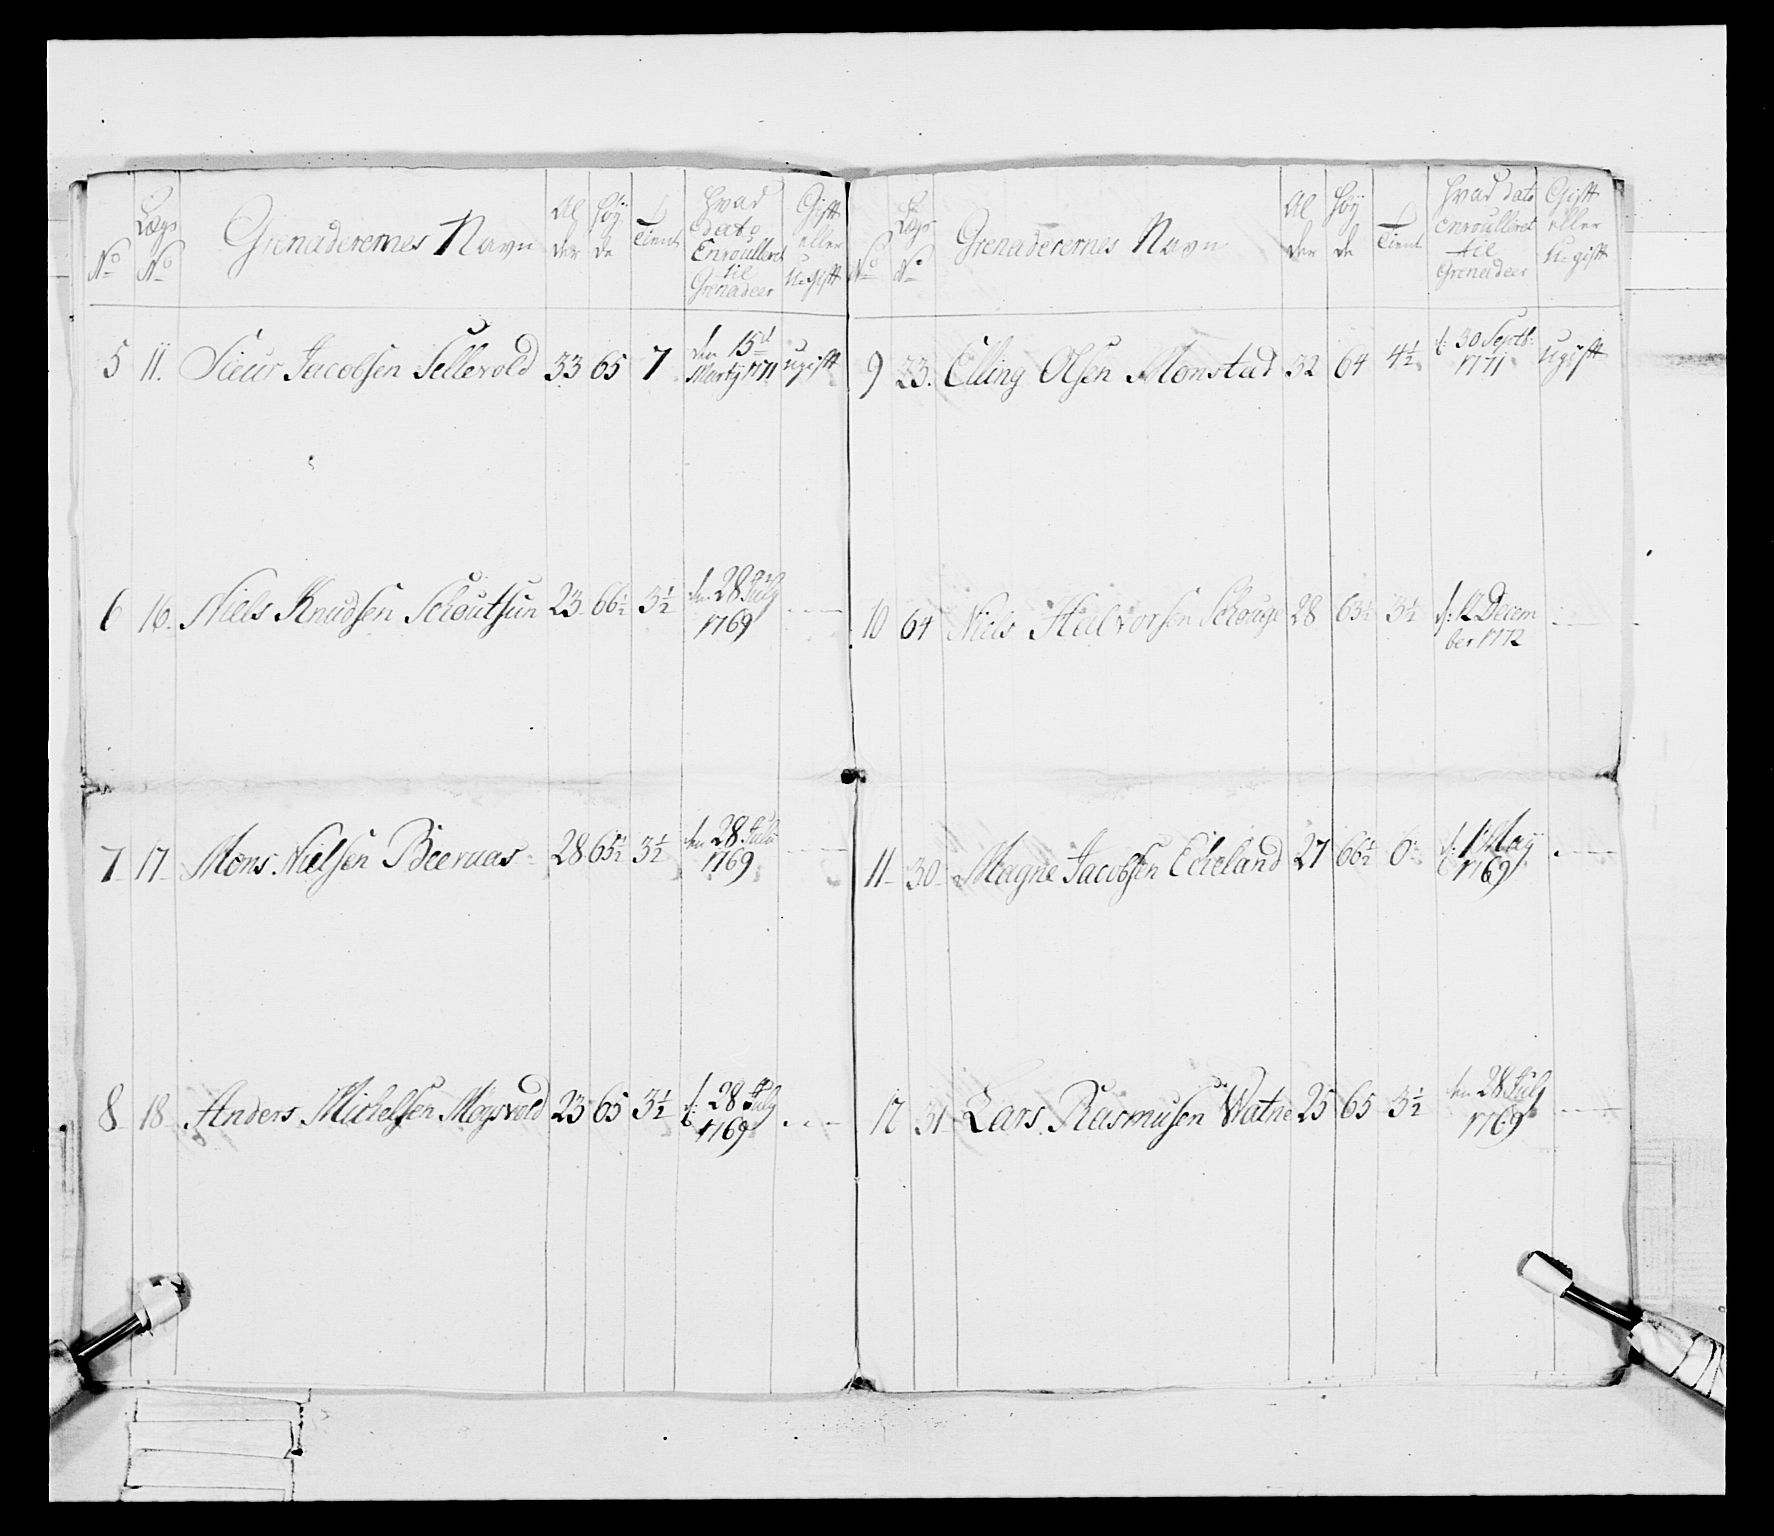 No Lægs No Grenaderernes Navn Al der Höy de Tient Hvad dato Enroulleret til Grenadeer Gift eller Ugift
5 11. Siur Jacobsen Sellevold 33 65 7 den 15d Martÿ 1771 ugift
6 16. Niels Knudsen Schoutsun 23 66½ 3½ den 28 July 1769 - - -
7 17 Mons Nielsen Beeraas 28 65½ 3½ den 28 July 1769
8 18 Anders Michelsen Mogsvold 23 65 3½ d: 28 July 1769 - - -
No Lægs No Grenaderernes Navn Al der Höÿ de Tient Hvad dato enroulleret til Grenadeer Gift eller U-gift
9 23. Elling Olsen Monstad 32 64 4½ d: 30 Septb: 1771 Ugift
10 64 Niels Halvorsen Schouge 28 63½ 3½ d: 12 Decem
ber 1772
11 30 Magne Jacobsen Echeland 27 66½ 6 d: 1 May 1769
12 31 Lars Rasmusen Watne 25 65 3½ den 28 July 1769